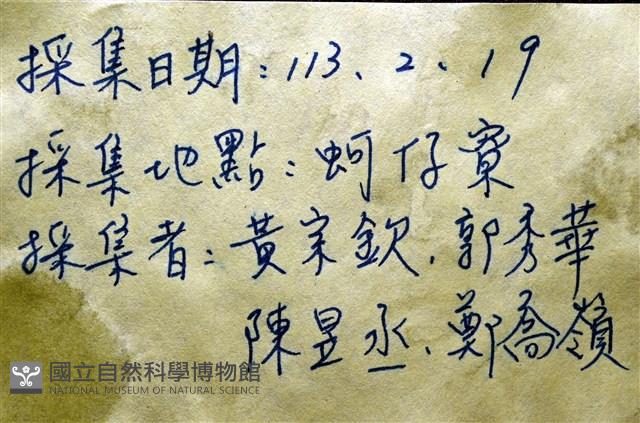 採集日期：113、2、19
採集地點：蚵仔寮
採集者：黃宗欽、郭秀華
陳昱丞、鄭喬嶺
國立自然科學博物館
NATIONAL MUSEUM OF NATURAL SCIENCE